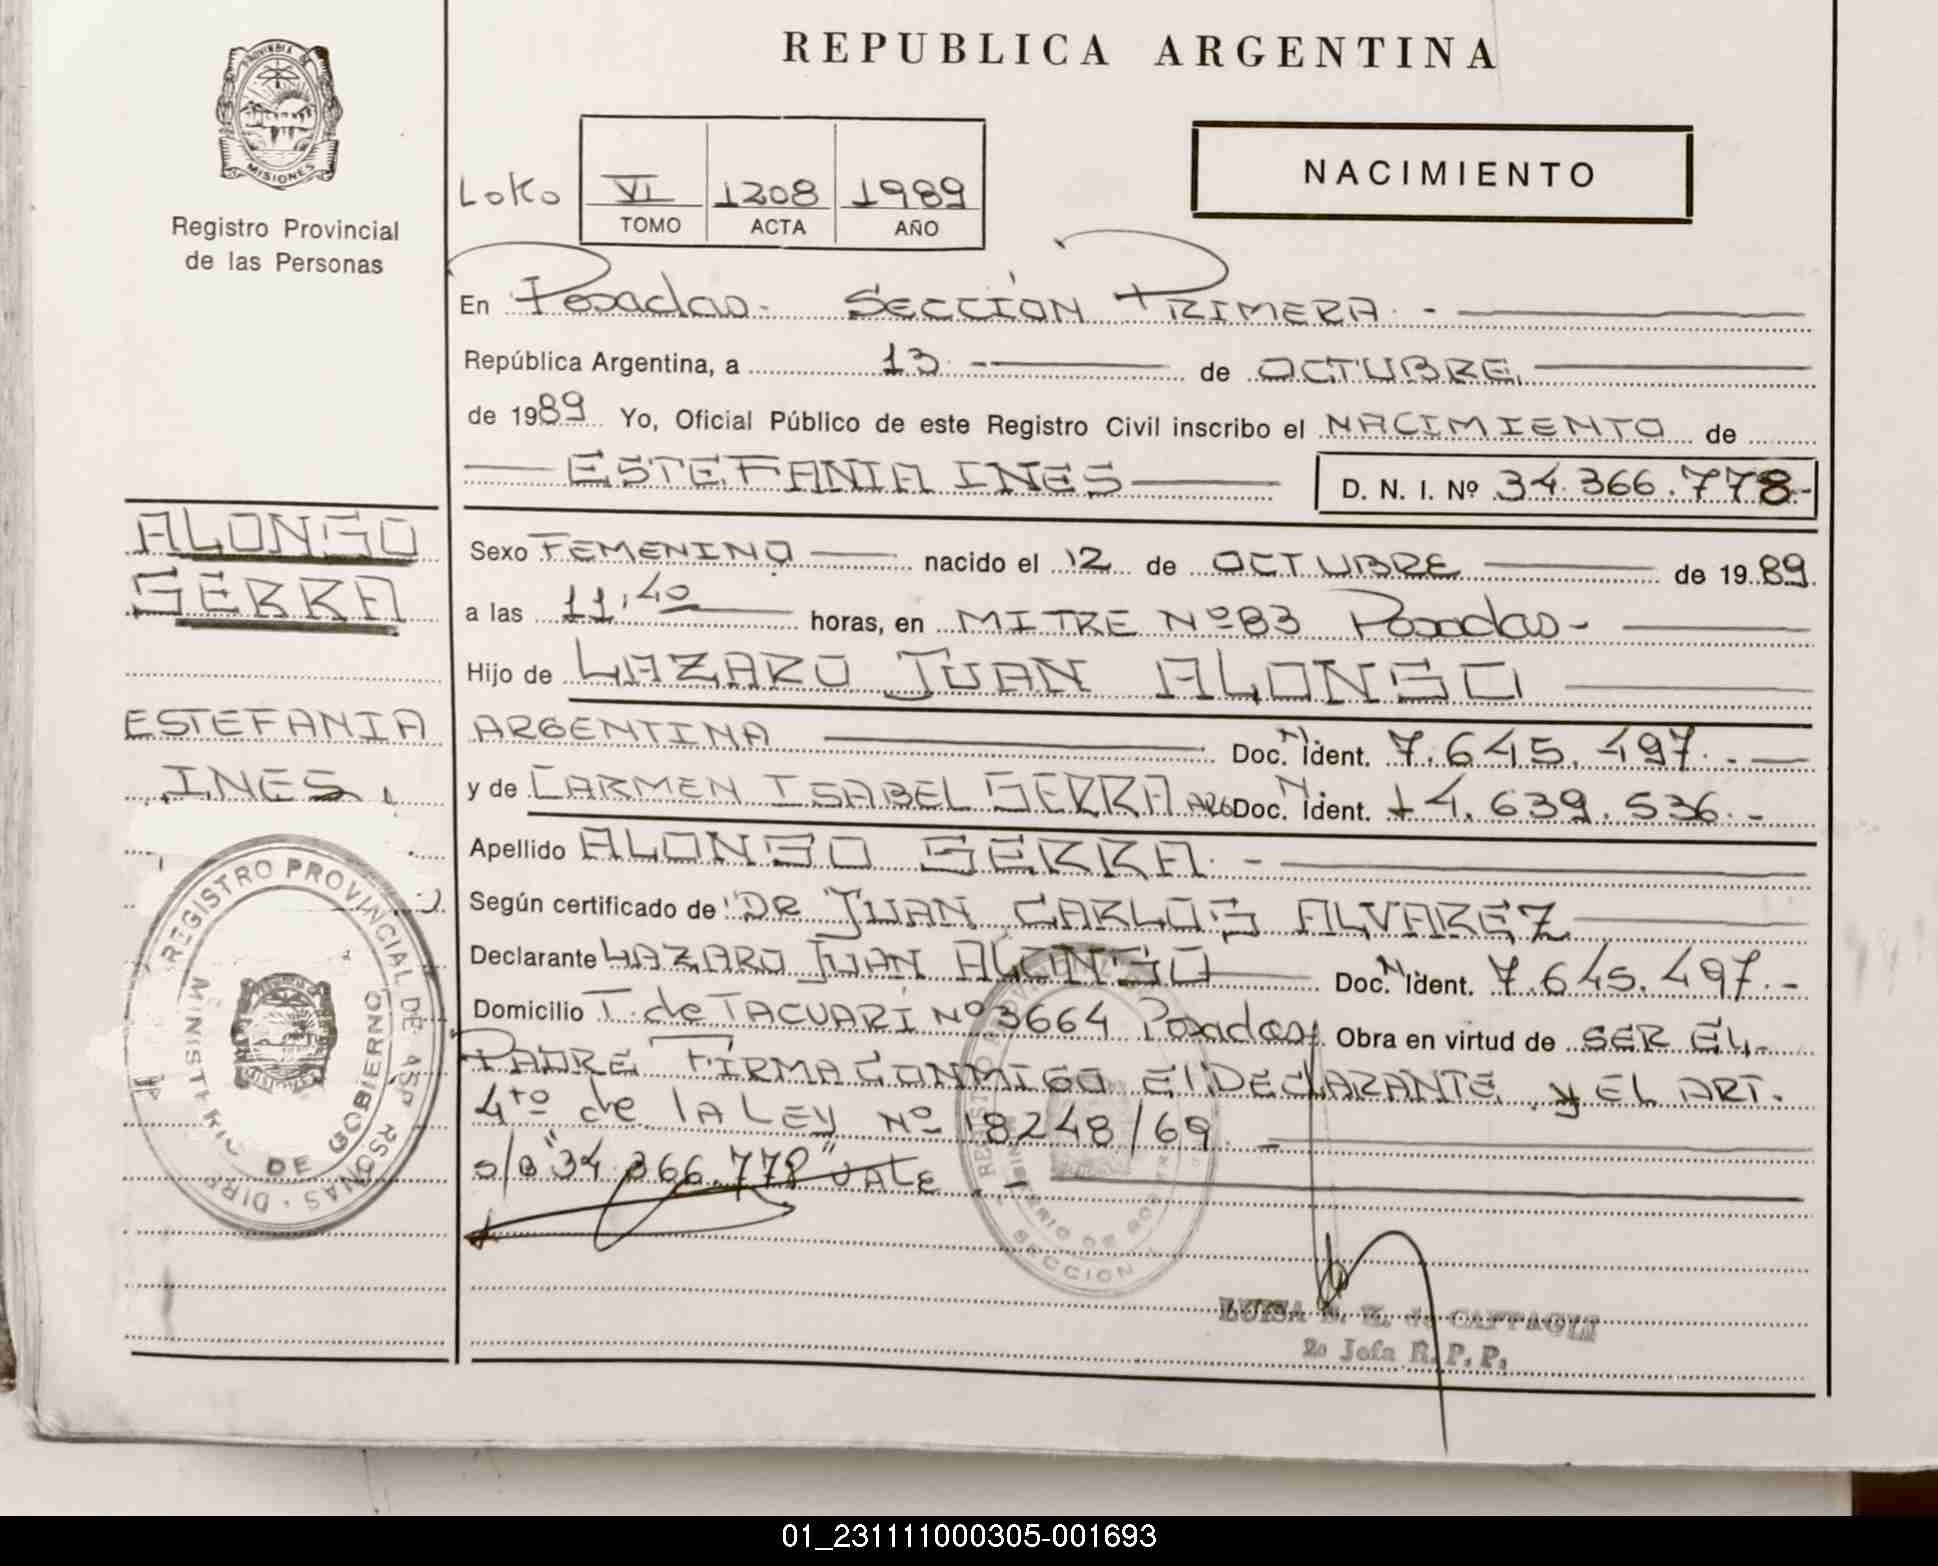 REPUBLICA ARGENTINA
PROVINCIA DE MISIONES
Registro Provincial
de las Personas
NACIMIENTO
VI 1208 1989
TOMO ACTA AÑO
En Posadas.- SECCIÓN PRIMERA.-
República Argentina, a 13 de OCTUBRE
de 1989 Yo, Oficial Público de este Registro Civil inscribo el NACIMIENTO de
ESTEFANIA INES D. N. I. Nº 34.366.778-
ALONSO
SERRA
ESTEFANIA
INES.
Sexo FEMENINO nacido el 12 de OCTUBRE de 1989.
a las 11,40 horas, en MITRE Nº 83 Posadas-
Hijo de LAZARO JUAN ALONSO
ARGENTINA Doc. N. Ident. 7.645.497.-
y de CARMEN ISABEL SERRA ARG Doc. N. Ident. 14.639.536.-
Apellido ALONSO SERRA.-
Según certificado de DR JUAN CARLOS ALVAREZ
Declarante LAZARO JUAN ALONSO Doc. N. Ident. 7.645.497.-
Domicilio T. de TACUARÍ Nº 3664 Posadas Obra en virtud de SER EL
PADRE FIRMA CONMIGO El DECLARANTE y EL ART.
4to de lA LEY Nº 18248/69.-
s/a "34.366.778" VALE.-
REGISTRO PROVINCIAL DE
MINISTERIO DE GOBIERNO
SECCION
2a Jefa R. P. P.
01_231111000305-001693